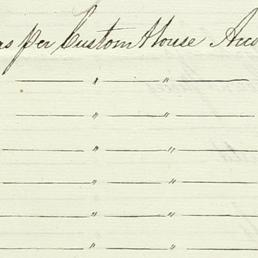 as per Custom House Acc
— " — " —
— " — " —
— " — " —
— " — " —
— " — " —
— " — " —